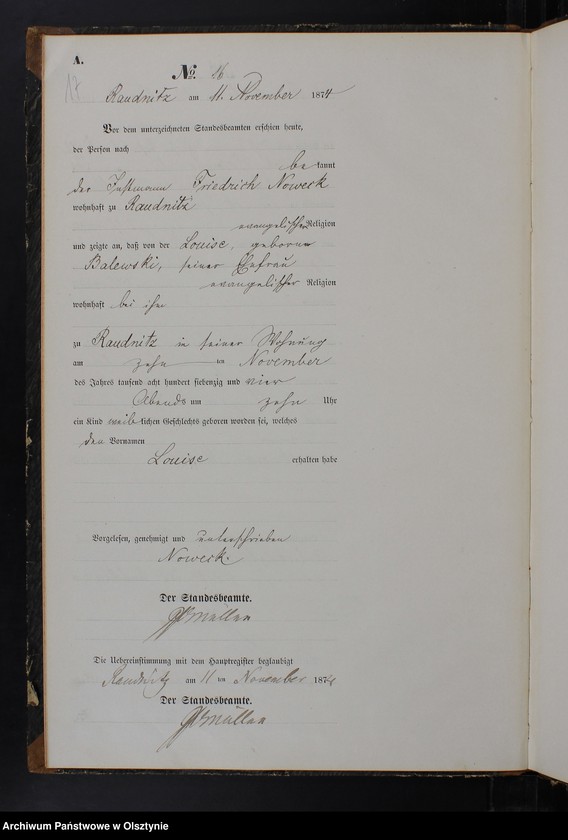 A.
No. 16
17
Raudnitz am 11. November 1874
Vor dem unterzeichneten Standesbeamten erschien heute,
der Person nach
be kannt
der Instmann Friedrich Noweck
wohnhaft zu Raudnitz
evangelischer Religion
und zeigte an, daß von der Louise, geborne
Balewski, seiner Ehefrau
evangelischer Religion
wohnhaft bei ihm
zu Raudnitz in seiner Wohnung
am zehn ten November
des Jahres tausend acht hundert siebenzig und vier
Abends um zehn Uhr
ein Kind weib lichen Geschlechts geboren worden sei, welches
den Vornamen
Louise erhalten habe
Vorgelesen, genehmigt und unterschrieben
Noweck.
Der Standesbeamte.
Die Uebereinstimmung mit dem Hauptregister beglaubigt
Raudnitz am 11 ten November 1874
Der Standesbeamte.
Archiwum Państwowe w Olsztynie